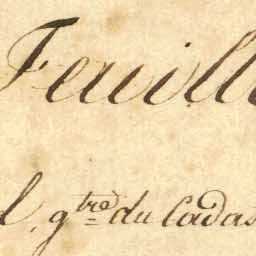 Feuill
l. gtre du Cadas